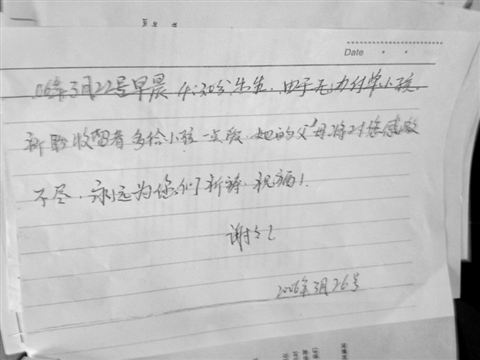 Date
06年3月22号早晨 4:30分出生,由于无力付养小孩
祈盼收留者多给小孩一点爱,她的父母将对您感激
不尽,永远为您们祈祷,祝福!
谢谢!
2006年3月26号